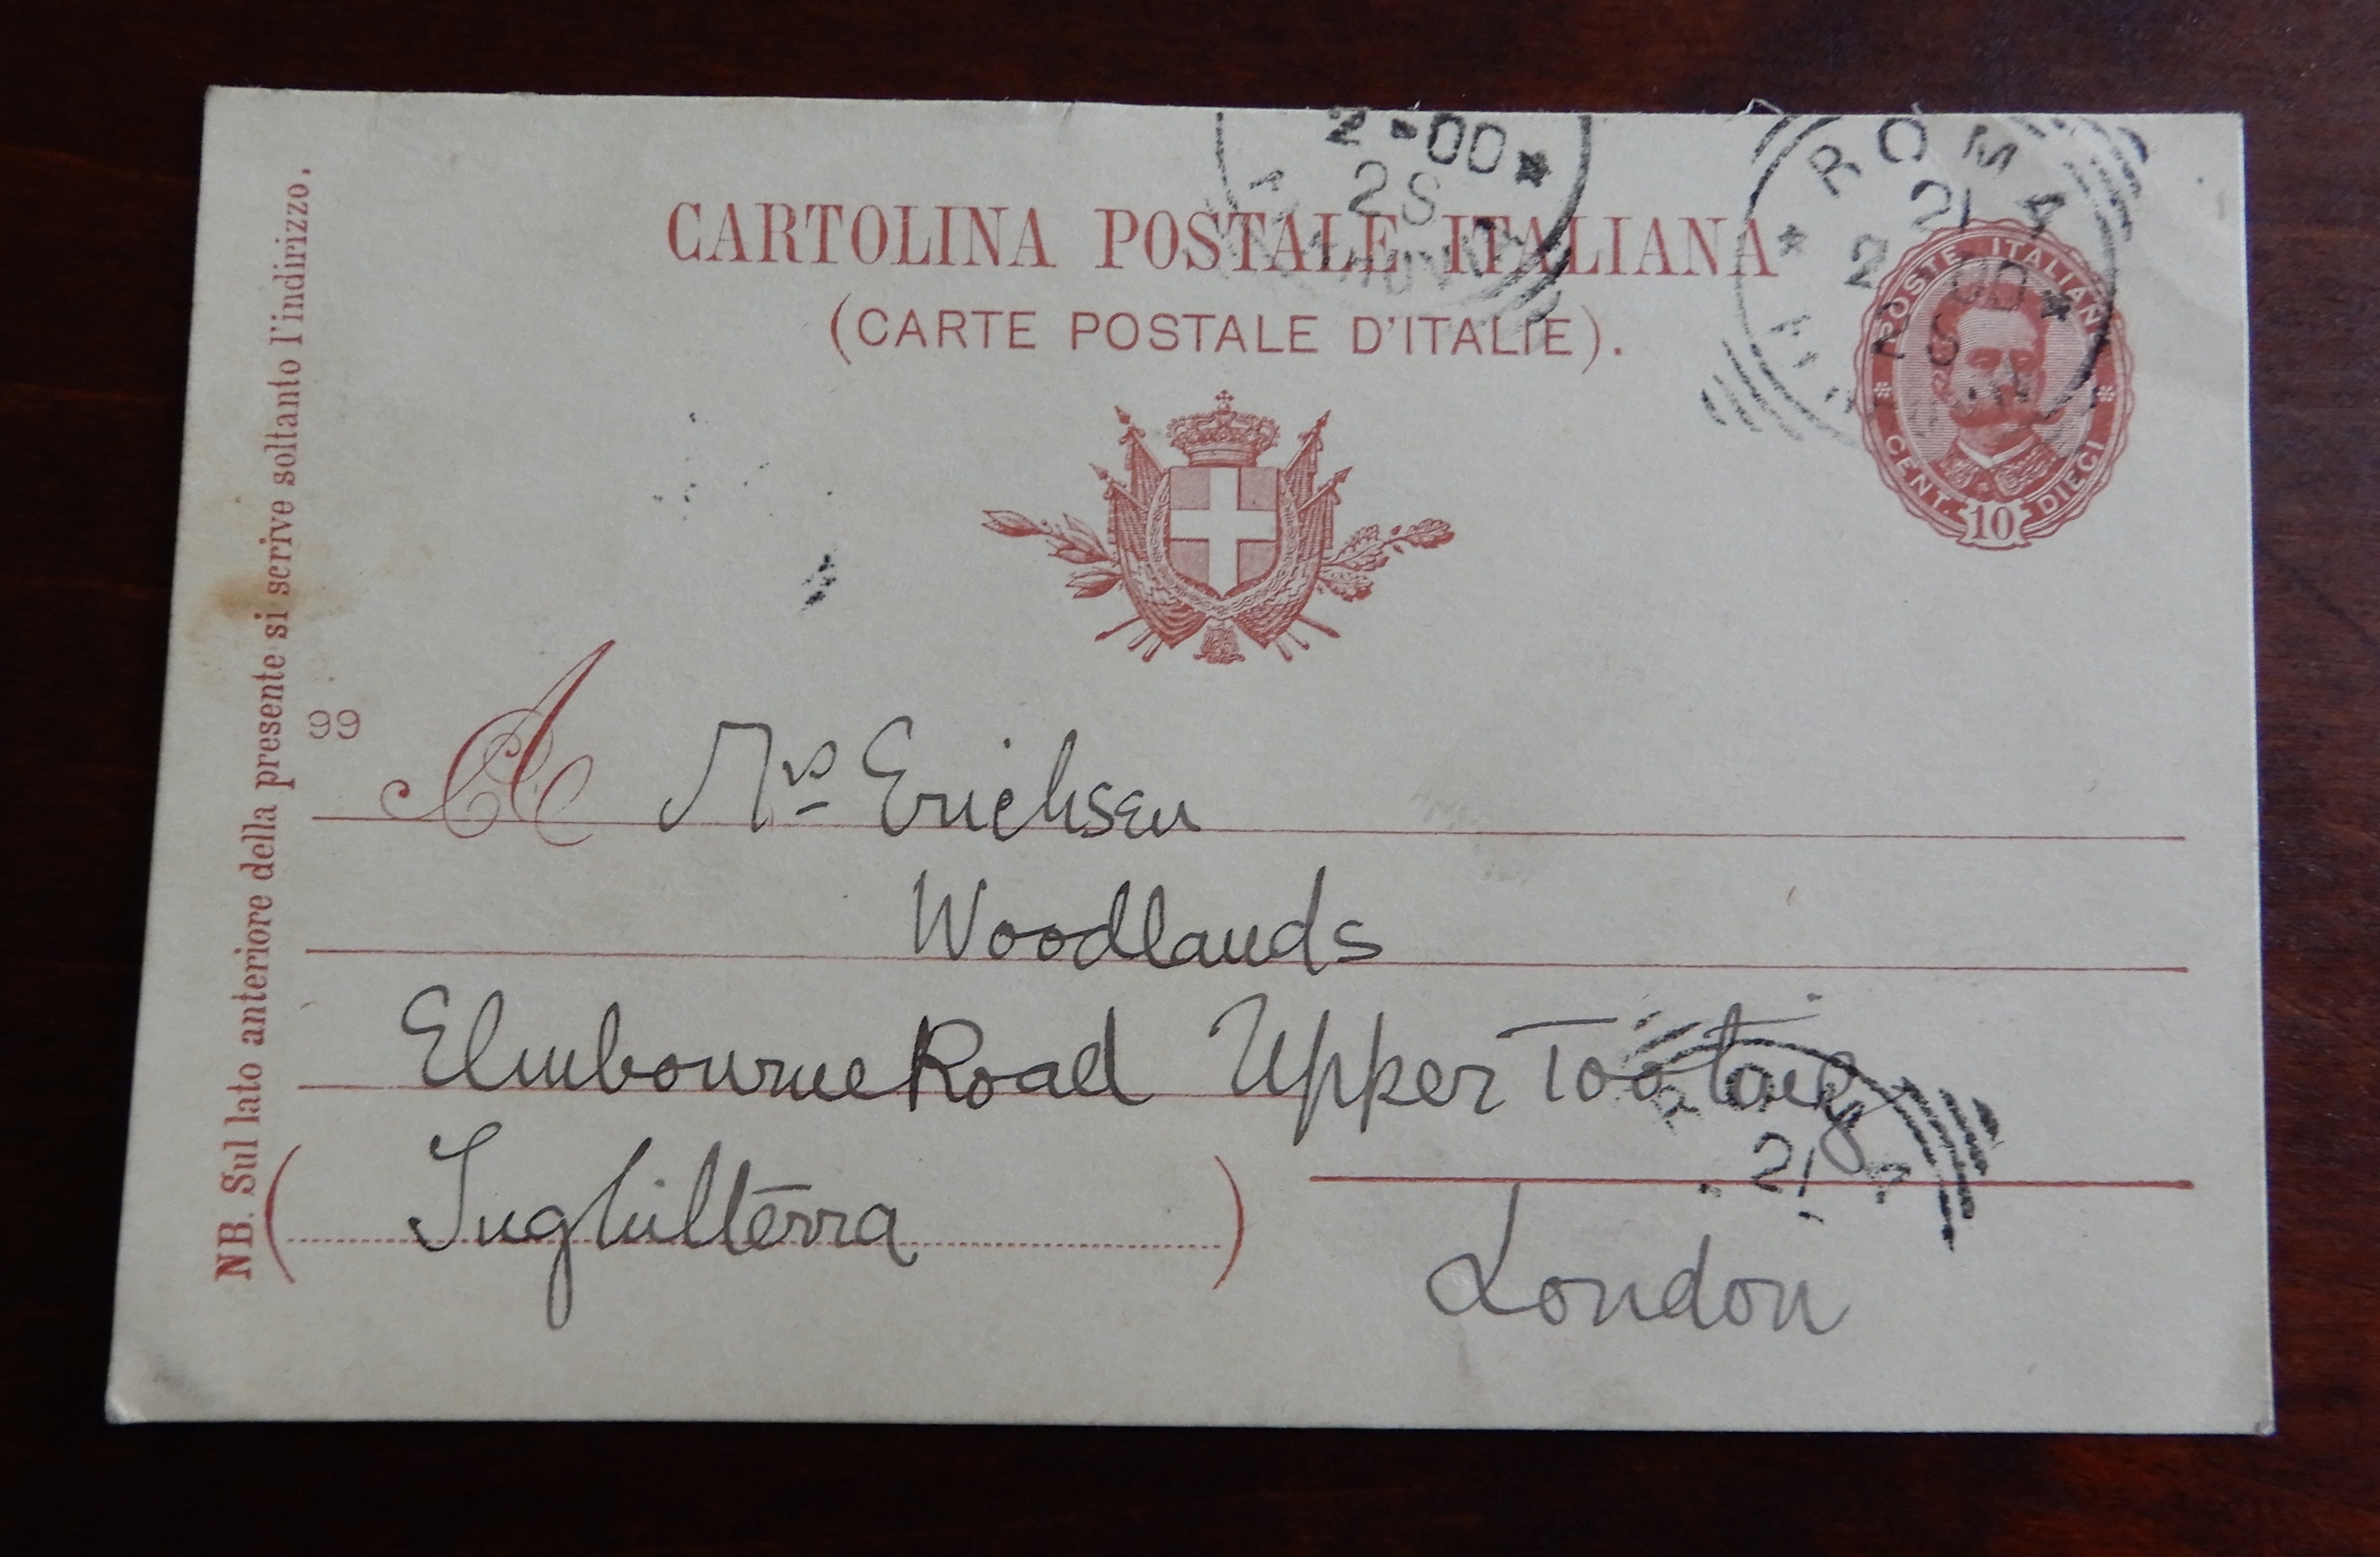 CARTOLINA POSTALE ITALIANA
(CARTE POSTALE D'ITALIE).
2-00
2S
ROMA
21
2 00
2S
POSTE ITALIANE
CENT. 10 DIECI
NB. Sul lato anteriore della presente si scrive soltanto l'indirizzo.
99
A Mrs Erichsen
Woodlands
Elmbourne Road Upper Tooting
Inghilterra
London
ROMA
21